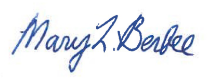 Mary L. Berbee